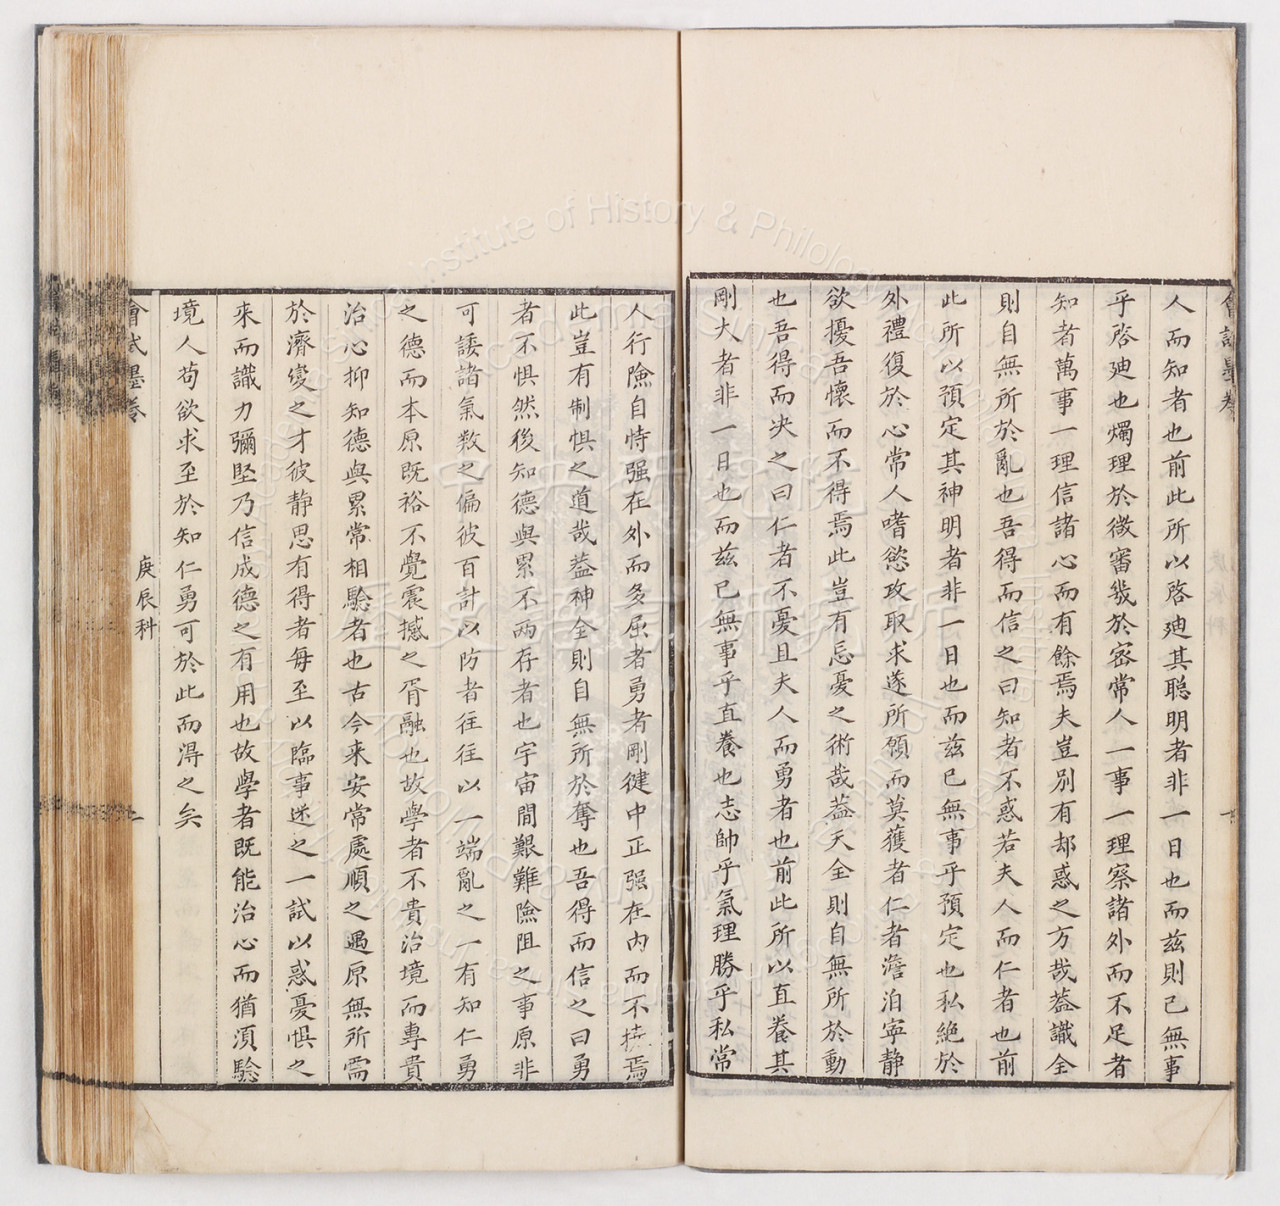 會試墨卷
人而知者也前此所以啓廸其聰明者非一日也而茲則已無事
乎啓廸也燭理於微審幾於密常人一事一理察諸外而不足者
知者萬事一理信諸心而有餘焉夫豈別有却惑之方哉蓋識全
則自無所於亂也吾得而信之曰知者不惑若夫人而仁者也前
此所以預定其神明者非一日也而茲已無事乎預定也私絶於
外禮復於心常人嗜慾攻取求遂所願而莫獲者仁者澹泊寧静
欲擾吾懷而不得焉此豈有忘憂之術哉蓋天全則自無所於動
也吾得而决之曰仁者不憂且夫人而勇者也前此所以直養其
剛大者非一日也而茲已無事乎直養也志帥乎氣理勝乎私常
人行險自恃强在外而多屈者勇者剛健中正强在内而不撓焉
此豈有制惧之道哉蓋神全則自無所於奪也吾得而信之曰勇
者不惧然後知德與累不兩存者也宇宙間艱難險阻之事原非
可諉諸氣數之偏彼百計以防者往往以一端亂之一有知仁勇
之德而本原既裕不覺震撼之胥融也故學者不貴治境而專貴
治心抑知德與累常相驗者也古今来安常處順之遇原無所需
於濟變之才彼静思有得者每至以臨事迷之一試以惑憂惧之
来而識力彌堅乃信成德之有用也故學者既能治心而猶湏驗
境人苟欲求至於知仁勇可於此而淂之矣
會試墨卷
庚辰科